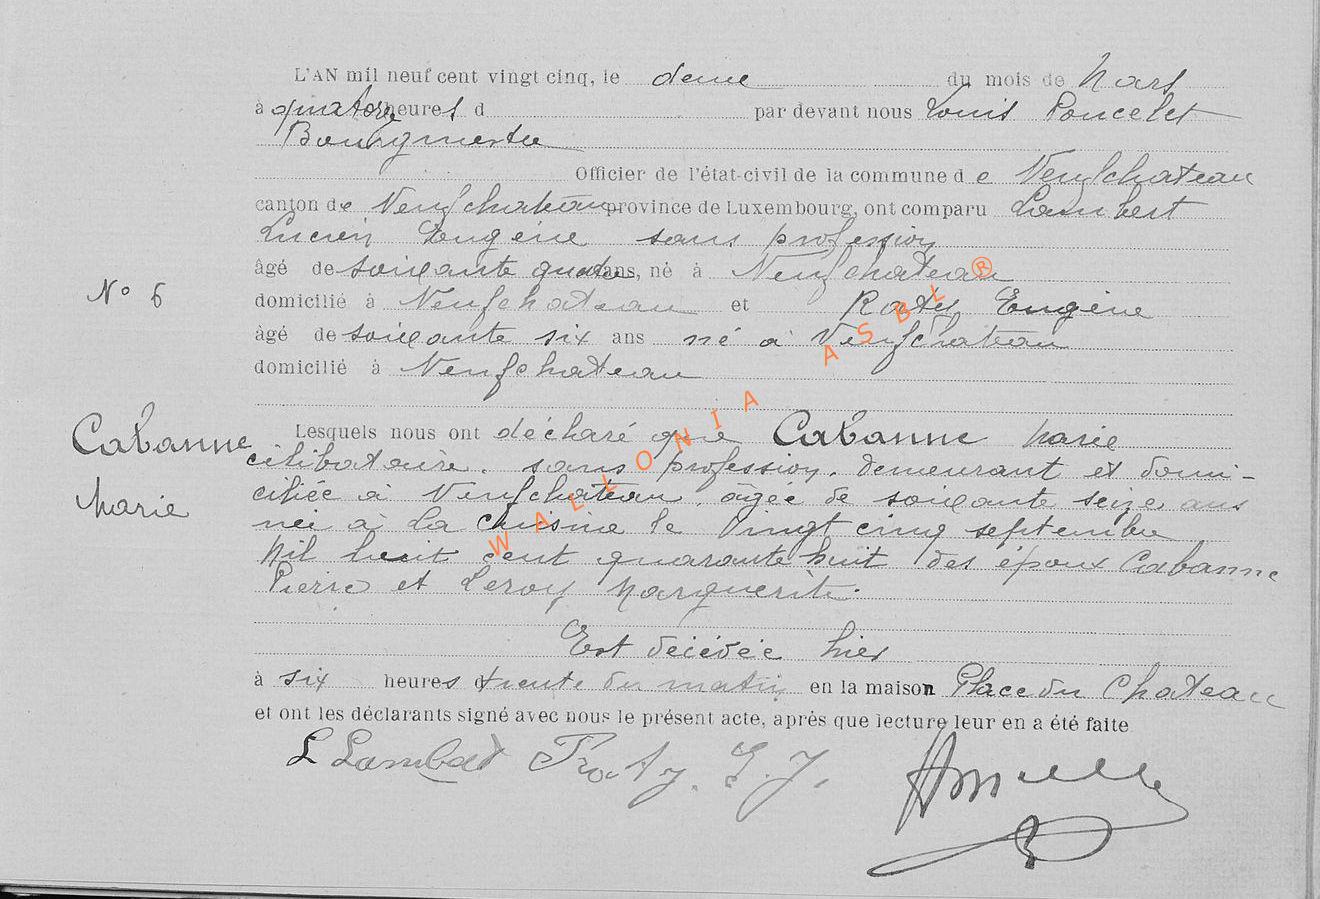 L'AN mil neuf cent vingt cinq, le deux du mois de Mars
à quatorze heures d par devant nous Louis Poncelet
Bourgmestre
Officier de l'état-civil de la commune de Neufchateau
canton de Neufchateau province de Luxembourg, ont comparu Lambert
Lucien Eugène sans profession
âgé de soixante quatre ans, né à Neufchateau
N° 6
domicilié à Neufchateau et Roty Eugène
âgé de soixante six ans né à Neufchateau
domicilié à Neufchateau
Cabanne
Marie
Lesquels nous ont déclaré que Cabanne Marie
célibataire. sans profession. demeurant et domi-
ciliée à Neufchateau, âgée de soixante seize ans
née à la cuisine le vingt cinq septembre
Mil huit cent quarante huit des époux Cabanne
Pierre et Leroy Marguerite.
Est décédée hier
à six heures trente du matin en la maison Place du Chateau
et ont les déclarants signé avec nous le présent acte, après que lecture leur en a été faite
L Lambert
WALLONIA ASBL®